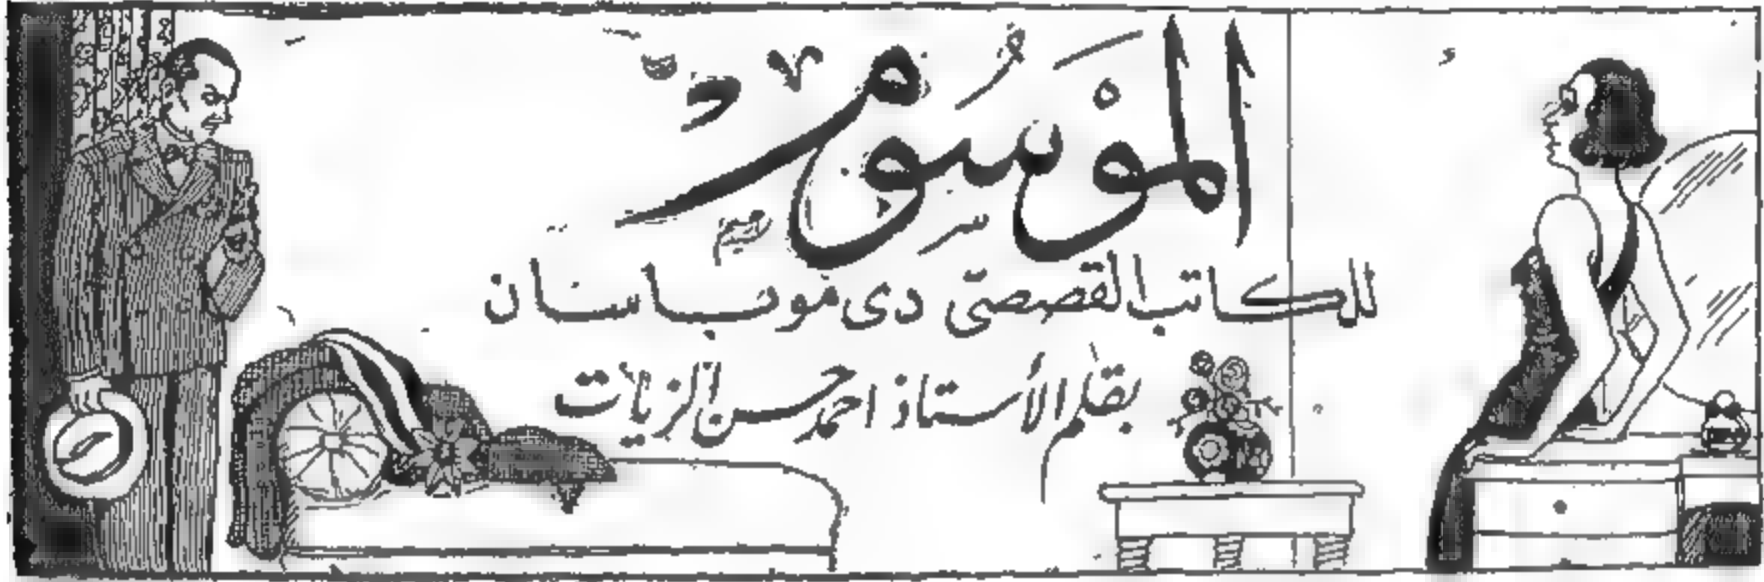 المَوْسُوم
للكاتب القصصىّ دى موباسان
بقلم الأستاذ احمد حسن الزيات